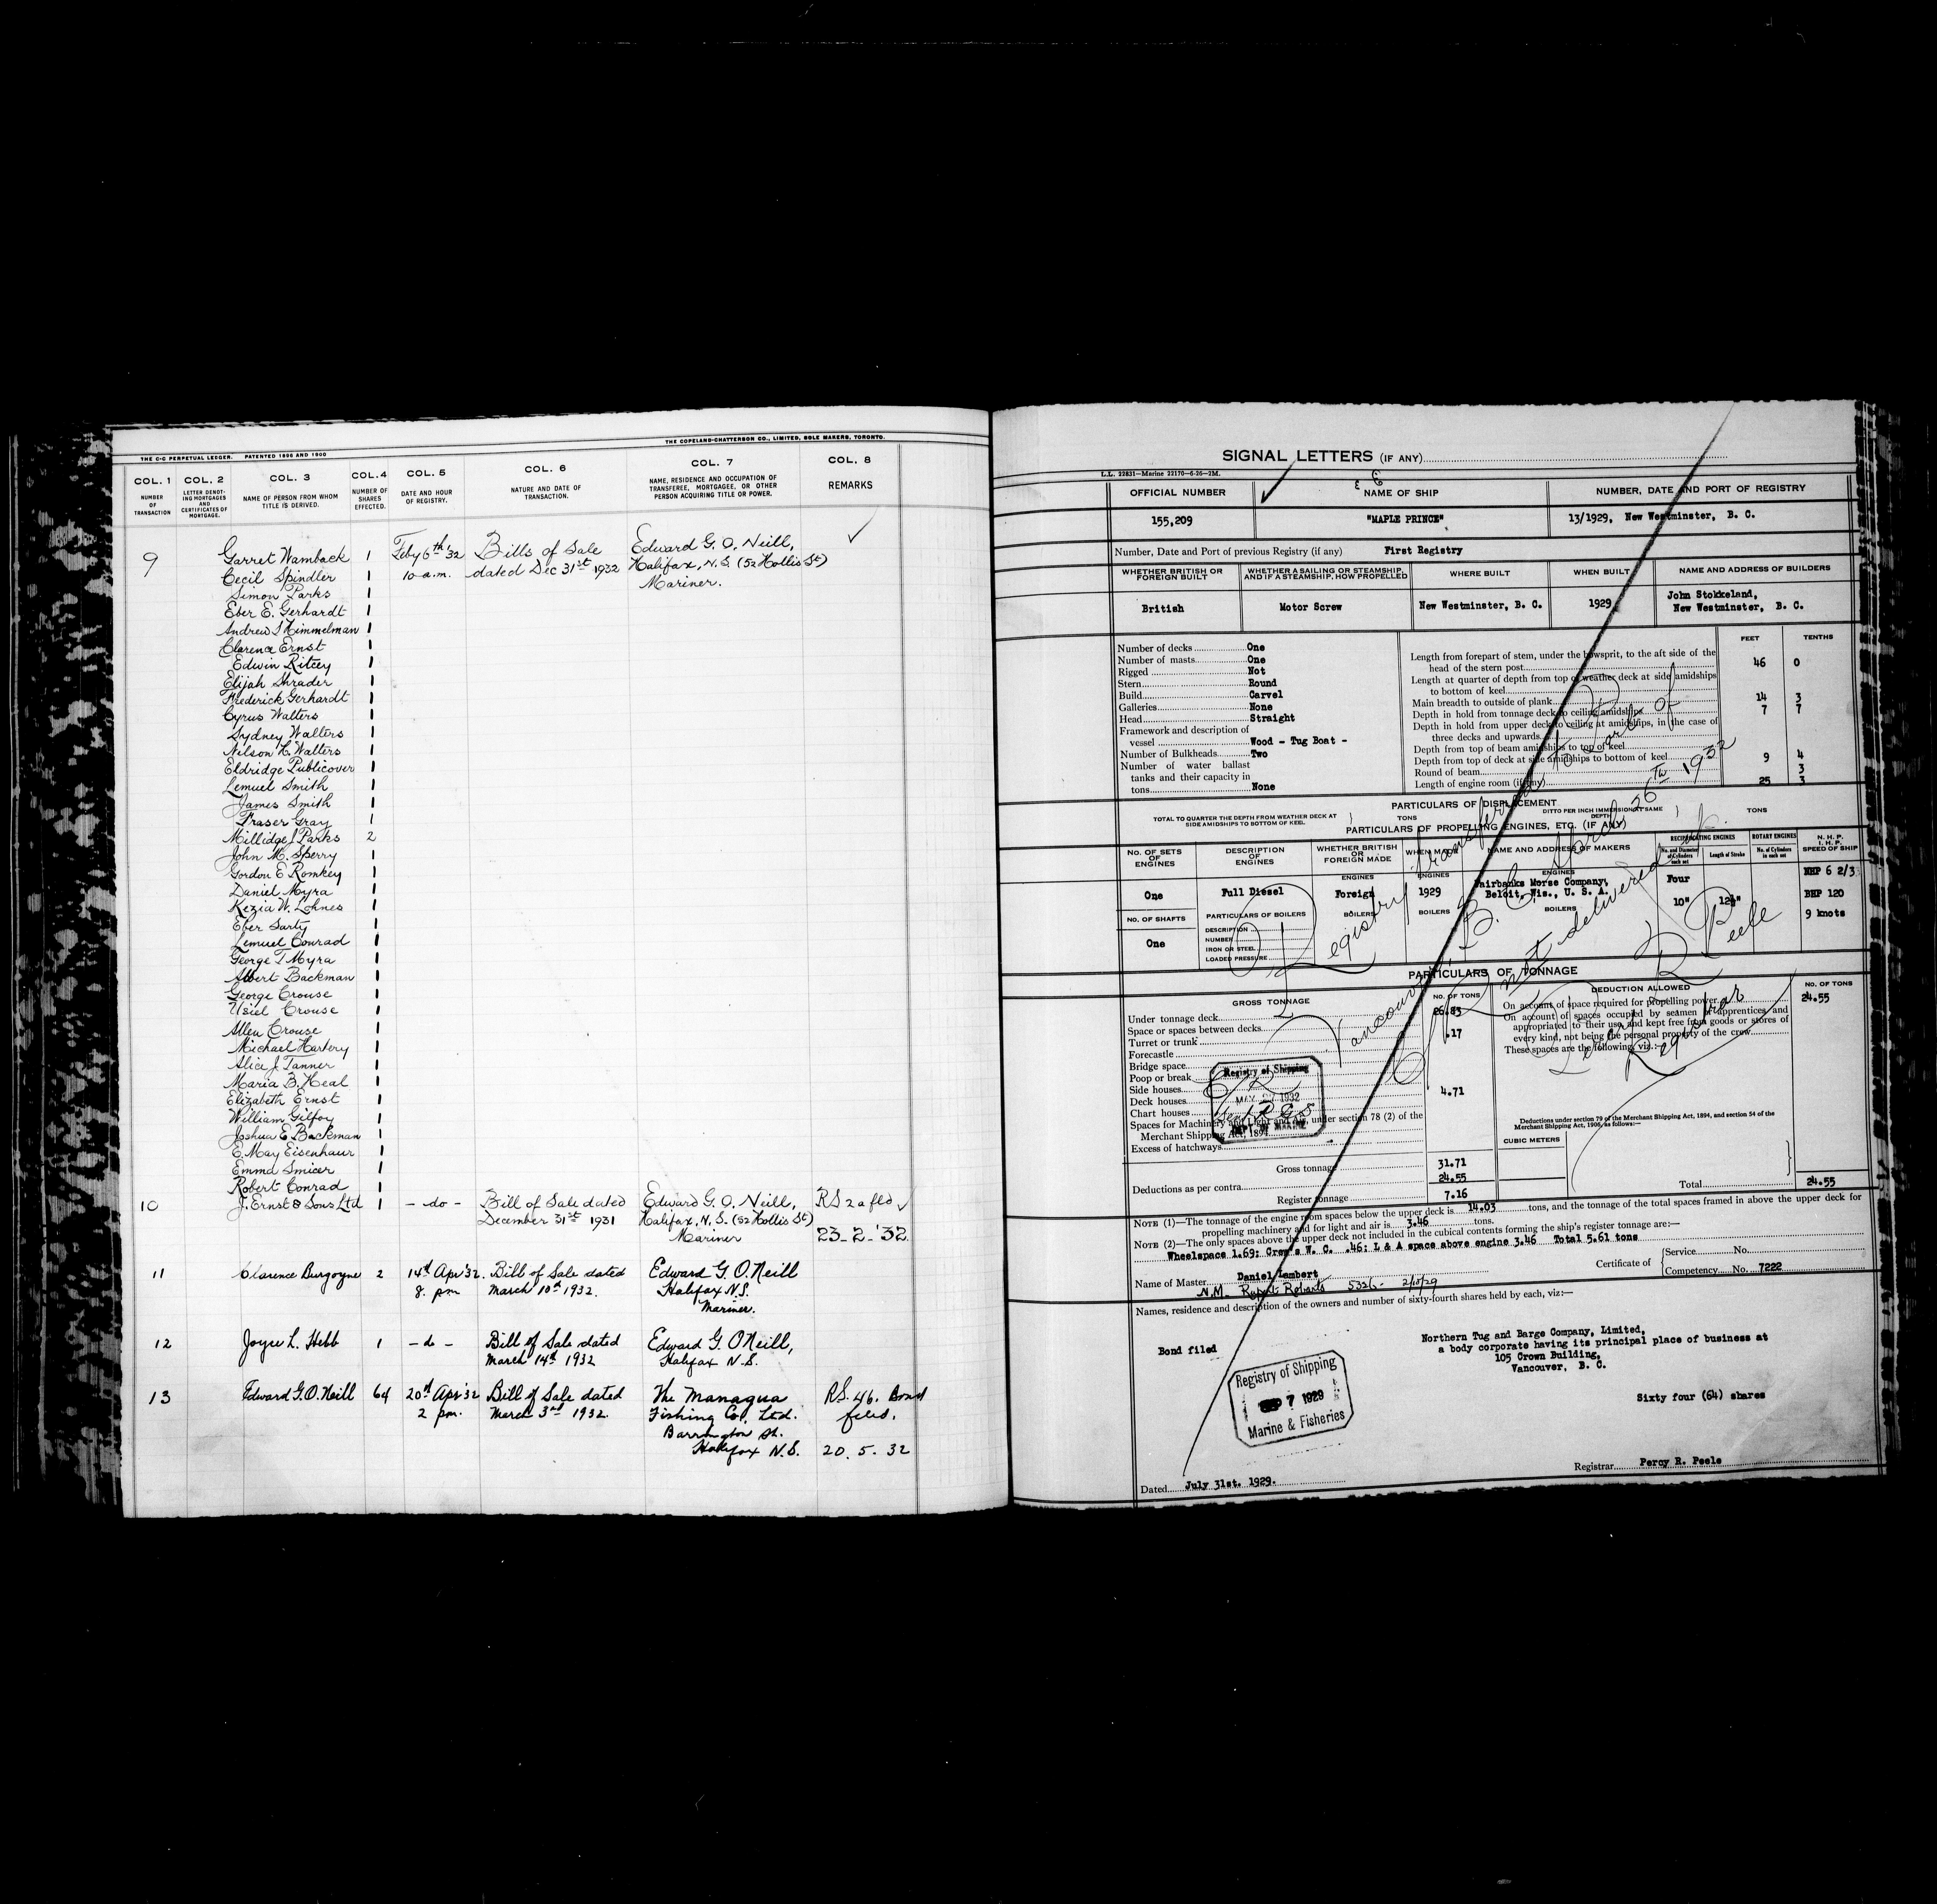 THE COPELAND-CHATTERSON CO., LIMITED, SOLE MAKERS, TORONTO.
THE C-C PERPETUAL LEDGER. PATENTED 1896 AND 1900
COL. 1 COL. 2 COL. 3 COL. 4 COL. 5 COL. 6 COL. 7 COL. 8
NUMBER OF TRANSACTION
LETTER DENOTING MORTGAGES AND CERTIFICATES OF MORTGAGE.
NAME OF PERSON FROM WHOM TITLE IS DERIVED.
NUMBER OF SHARES EFFECTED.
DATE AND HOUR OF REGISTRY.
NATURE AND DATE OF TRANSACTION.
NAME, RESIDENCE AND OCCUPATION OF TRANSFEREE, MORTGAGEE, OR OTHER PERSON ACQUIRING TITLE OR POWER.
REMARKS
9 Garret Wamback 1 Feby 6th '32 Bills of Sale Edward G. O. Neill,
Cecil Spindler 1 10 a.m. dated Dec 31st 1932 Halifax, N.S. (52 Hollis St)
Simon Parks 1 Mariner.
Eber E. Gerhardt 1
Andrew S Himmelman 1
Clarence Ernst 1
Edwin Ritcey 1
Elijah Shrader 1
Frederick Gerhardt 1
Cyrus Walters 1
Sydney Walters 1
Nilson H. Walters 1
Eldridge Publicover 1
Lemuel Smith 1
James Smith 1
Fraser Gray 1
Millidge J Parks 2
John M. Sperry 1
Gordon E Romkey 1
Daniel Myra 1
Kezia W. Lohnes 1
Eber Sarty 1
Lemuel Conrad 1
George T Myra 1
Albert Backman 1
George Crouse 1
Usiel Crouse 1
Allen Crouse 1
Michael Hartery 1
Alice J Tanner 1
Maria B. Heal 1
Elizabeth Ernst 1
William Gilfoy 1
Joshua E Backman 1
E. May Eisenhaur 1
Emma Smicer 1
Robert Conrad 1
10 J. Ernst & Sons Ltd 1 - do - Bill of Sale dated Edward G. O. Neill, RS 2a fled
December 31st 1931 Halifax, N.S. (52 Hollis St)
Mariner 23-2-'32
11 Clarence Burgoyne 2 14th Apr '32. Bill of Sale dated Edward G. O.Neill
8. pm March 10th 1932. Halifax N.S.
Mariner.
12 Joyce L. Hebb 1 - do - Bill of Sale dated Edward G. ONeill,
March 14th 1932 Halifax N.S.
13 Edward G.O.Neill 64 20th Apr '32 Bill of Sale dated The Managua R.S. 46. Bond
2 pm. March 3rd 1932. Fishing Co, Ltd. filed.
Barrington St.
Halifax N.S. 20. 5. 32
SIGNAL LETTERS (IF ANY)
L.L. 22831—Marine 22170—6-26—2M.
OFFICIAL NUMBER NAME OF SHIP NUMBER, DATE AND PORT OF REGISTRY
155,209 "MAPLE PRINCE" 13/1929, New Westminster, B. C.
Number, Date and Port of previous Registry (if any) First Registry
WHETHER BRITISH OR FOREIGN BUILT
WHETHER A SAILING OR STEAMSHIP, AND IF A STEAMSHIP, HOW PROPELLED
WHERE BUILT WHEN BUILT NAME AND ADDRESS OF BUILDERS
British Motor Screw New Westminster, B. C. 1929 John Stokkeland,
New Westminster, B. C.
FEET TENTHS
Number of decks One
Number of masts One
Rigged Not
Stern Round
Build Carvel
Galleries None
Head Straight
Framework and description of
vessel Wood - Tug Boat -
Number of Bulkheads Two
Number of water ballast
tanks and their capacity in
tons None
Length from forepart of stem, under the bowsprit, to the aft side of the
head of the stern post 46 0
Length at quarter of depth from top of weather deck at side amidships
to bottom of keel
Main breadth to outside of plank 14 3
Depth in hold from tonnage deck to ceiling amidships 7 7
Depth in hold from upper deck to ceiling at amidships, in the case of
three decks and upwards
Depth from top of beam amidships to top of keel
Depth from top of deck at side amidships to bottom of keel 9 4
Round of beam 3
Length of engine room (if any) 25 3
PARTICULARS OF DISPLACEMENT
TOTAL TO QUARTER THE DEPTH FROM WEATHER DECK AT SIDE AMIDSHIPS TO BOTTOM OF KEEL TONS DITTO PER INCH IMMERSION AT SAME DEPTH TONS
PARTICULARS OF PROPELLING ENGINES, ETC. (IF ANY)
NO. OF SETS OF ENGINES
DESCRIPTION OF ENGINES
WHETHER BRITISH OR FOREIGN MADE
WHEN MADE
NAME AND ADDRESS OF MAKERS
RECIPROCATING ENGINES
No. and Diameter of Cylinders each set
Length of Stroke
ROTARY ENGINES
No. of Cylinders in each set
N. H. P.
I. H. P.
SPEED OF SHIP
ENGINES ENGINES ENGINES
One Full Diesel Foreign 1929 Fairbanks Morse Company,
Beloit, Wis., U. S. A.
Four 10" 12½" NHP 6 2/3
BHP 120
9 knots
NO. OF SHAFTS PARTICULARS OF BOILERS BOILERS BOILERS BOILERS
One
DESCRIPTION
NUMBER
IRON OR STEEL
LOADED PRESSURE
Registry transferred to Port of
Vancouver, B. C. March 26th 1932
not delivered up.
R Peele
Registrar
PARTICULARS OF TONNAGE
GROSS TONNAGE NO. OF TONS DEDUCTION ALLOWED NO. OF TONS
Under tonnage deck 26.83
Space or spaces between decks
Turret or trunk .17
Forecastle
Bridge space
Poop or break
Side houses
Deck houses 4.71
Chart houses
Spaces for Machinery and Light and Air, under section 78 (2) of the
Merchant Shipping Act, 1894
Excess of hatchways
Gross tonnage 31.71
Deductions as per contra 24.55
Register tonnage 7.16
On account of space required for propelling power 24.55
On account of spaces occupied by seamen or apprentices and
appropriated to their use, and kept free from goods or stores of
every kind, not being the personal property of the crew
These spaces are the following, viz.:—
Deductions under section 79 of the Merchant Shipping Act, 1894, and section 54 of the
Merchant Shipping Act, 1906, as follows:—
CUBIC METERS
Total 24.55
Registry of Shipping
MAY 1932
DEPT. OF MARINE
NOTE (1)—The tonnage of the engine room spaces below the upper deck is 14.03 tons, and the tonnage of the total spaces framed in above the upper deck for
propelling machinery and for light and air is 3.46 tons.
NOTE (2)—The only spaces above the upper deck not included in the cubical contents forming the ship's register tonnage are:—
Wheelspace 1.69; Crew's W. C. .46; L & A space above engine 3.46 Total 5.61 tons
Name of Master Daniel Lambert Certificate of Service No.
Competency No. 7222
N.M. Rupert Roberts
Names, residence and description of the owners and number of sixty-fourth shares held by each, viz:—
Bond filed
Northern Tug and Barge Company, Limited,
a body corporate having its principal place of business at
105 Crown Building,
Vancouver, B. C.
Sixty four (64) shares
Registry of Shipping
SEP 7 1929
Marine & Fisheries
Dated July 31st. 1929.
Registrar Percy R. Peele